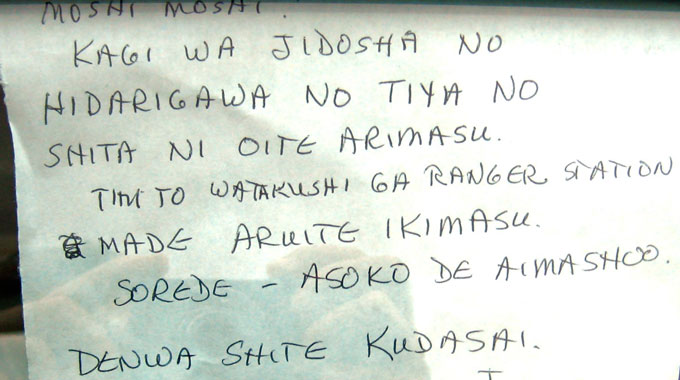 MOSHI MOSHI.
KAGI WA JIDOSHA NO
HIDARIGAWA NO TIYA NO
SHITA NI OITE ARIMASU.
TIM TO WATAKUSHI GA RANGER STATION
MADE ARUITE IKIMASU.
SOREDE - ASOKO DE AIMASHOO.
DENWA SHITE KUDASAI.